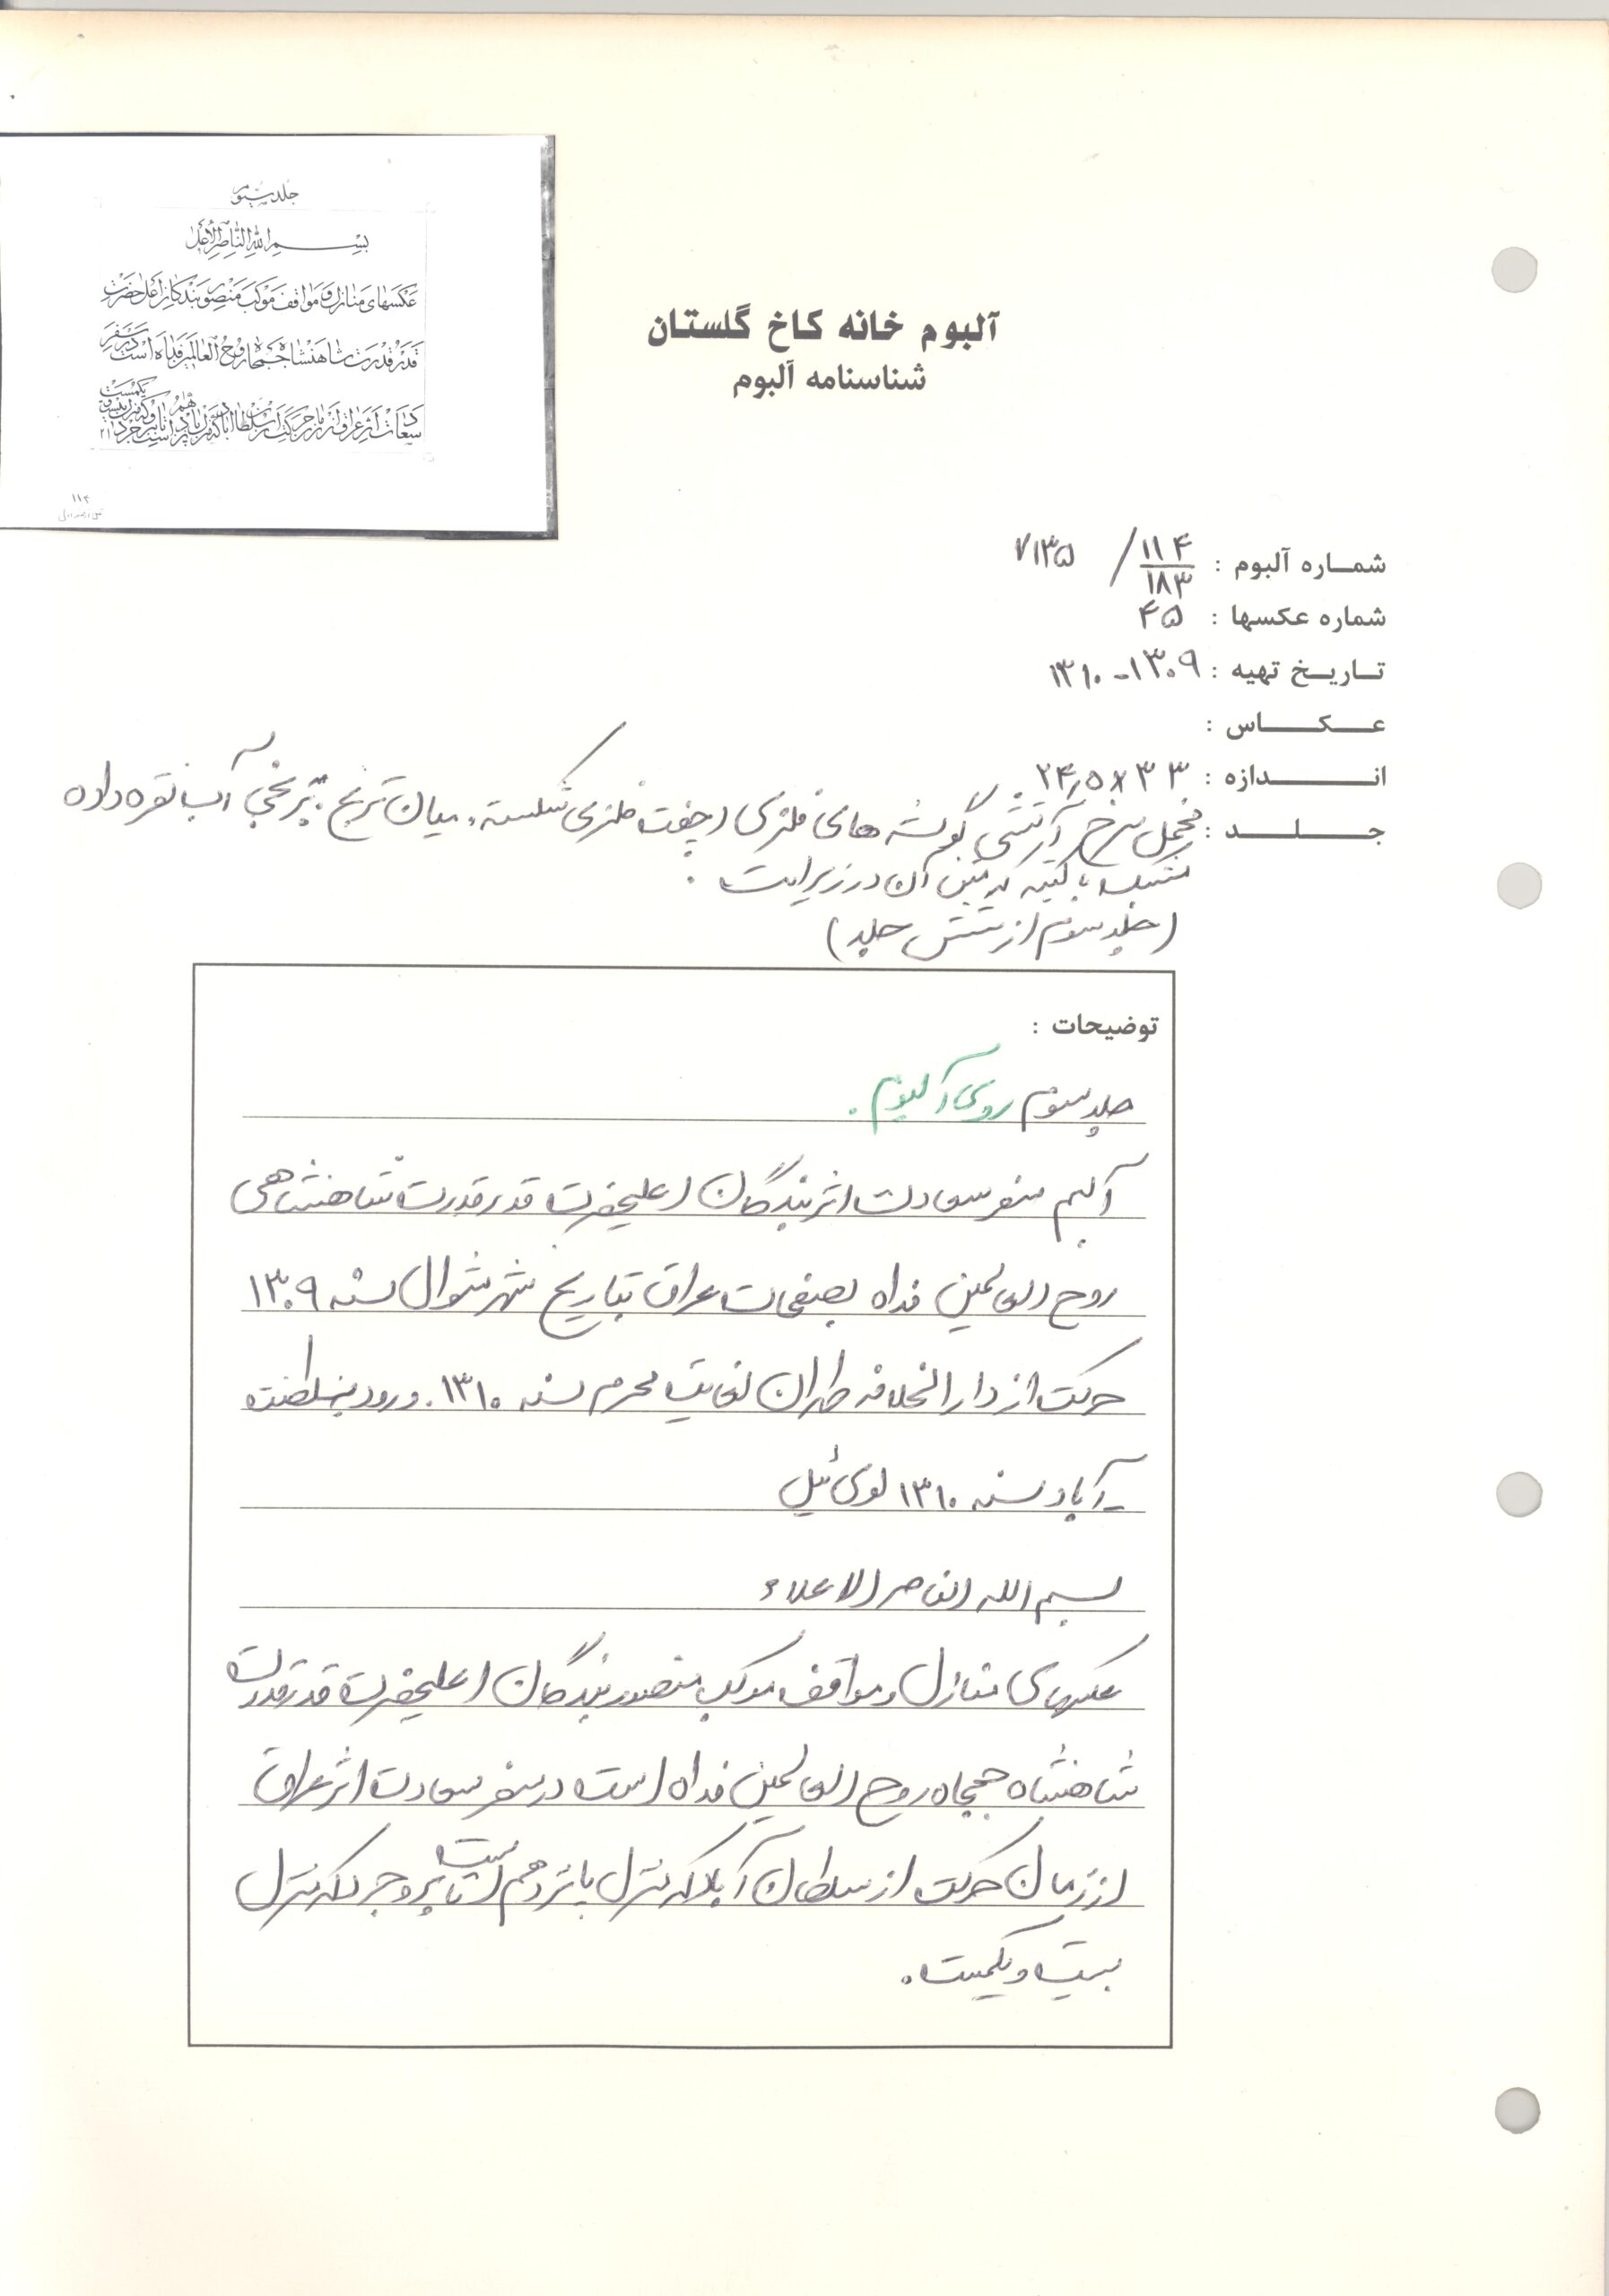 جلد سوم
بسم الله الناصر الاعلی
عکسهای منازل و مواقف موکب منصور بندگان اعلیحضرت
قدر قدرت شاهنشاه جمجاه روح العالمین فداه است در سفر
سعادت اثر عراق از زمان حرکت از سلطان آباد که منزل
۱۱۴
آلبوم خانه کاخ گلستان
شناسنامه آلبوم
شماره آلبوم : ۱۱۴/۱۸۳ / ۷۱۳۵
شماره عکسها : ۴۵
تاریخ تهیه : ۱۳۰۹-۱۳۱۰
عکاس :
اندازه : ۲۴٫۵×۳۳
جلد : مخمل سرخ آتشی گوشه های فلزی و چفت فلزی شکسته، میان ترنج برنجی آب نقره داده
مشبک با کتیبه که متن آن در زیر است .
(جلد سوم از شش جلد)
توضیحات :
جلد سوم روی آلبوم .
آلبم سفر سعادت اثر بندگان اعلیحضرت قدر قدرت شاهنشاهی
روح العالمین فداه بصفحات عراق بتاریخ شهر شوال سنه ۱۳۰۹
حرکت از دارالخلافه طهران لغایت محرم سنه ۱۳۱۰. ورود بسلطنت
آباد سنه ۱۳۱۰ لوی ئیل
بسم الله الناصر الاعلاء
عکسهای منازل و مواقف موکب منصور بندگان اعلیحضرت قدر قدرت
شاهنشاه جمجاه روح العالمین فداه است در سفر سعادت اثر عراق
از زمان حرکت از سلطان آباد که منزل پانزدهم است تا بروجرد که منزل
بیست و یکمست.